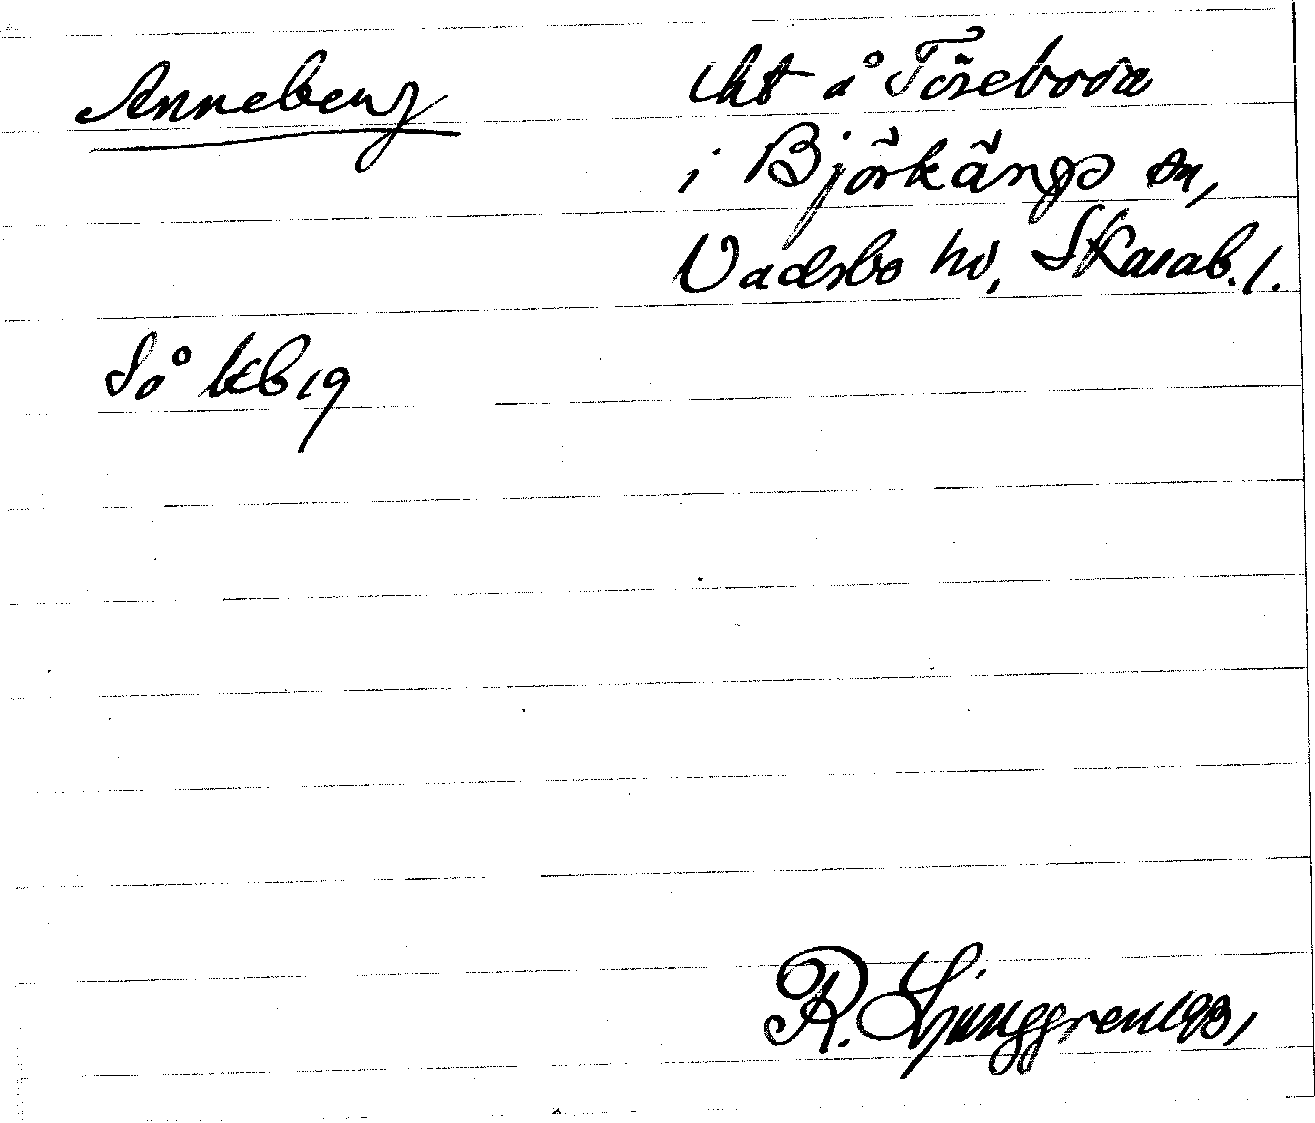 Anneberg
lht å Töreboda
i Björkängs sn,
Vadsbo hd, Skarab. l.
Så kb 19
R. Ljunggren 1931